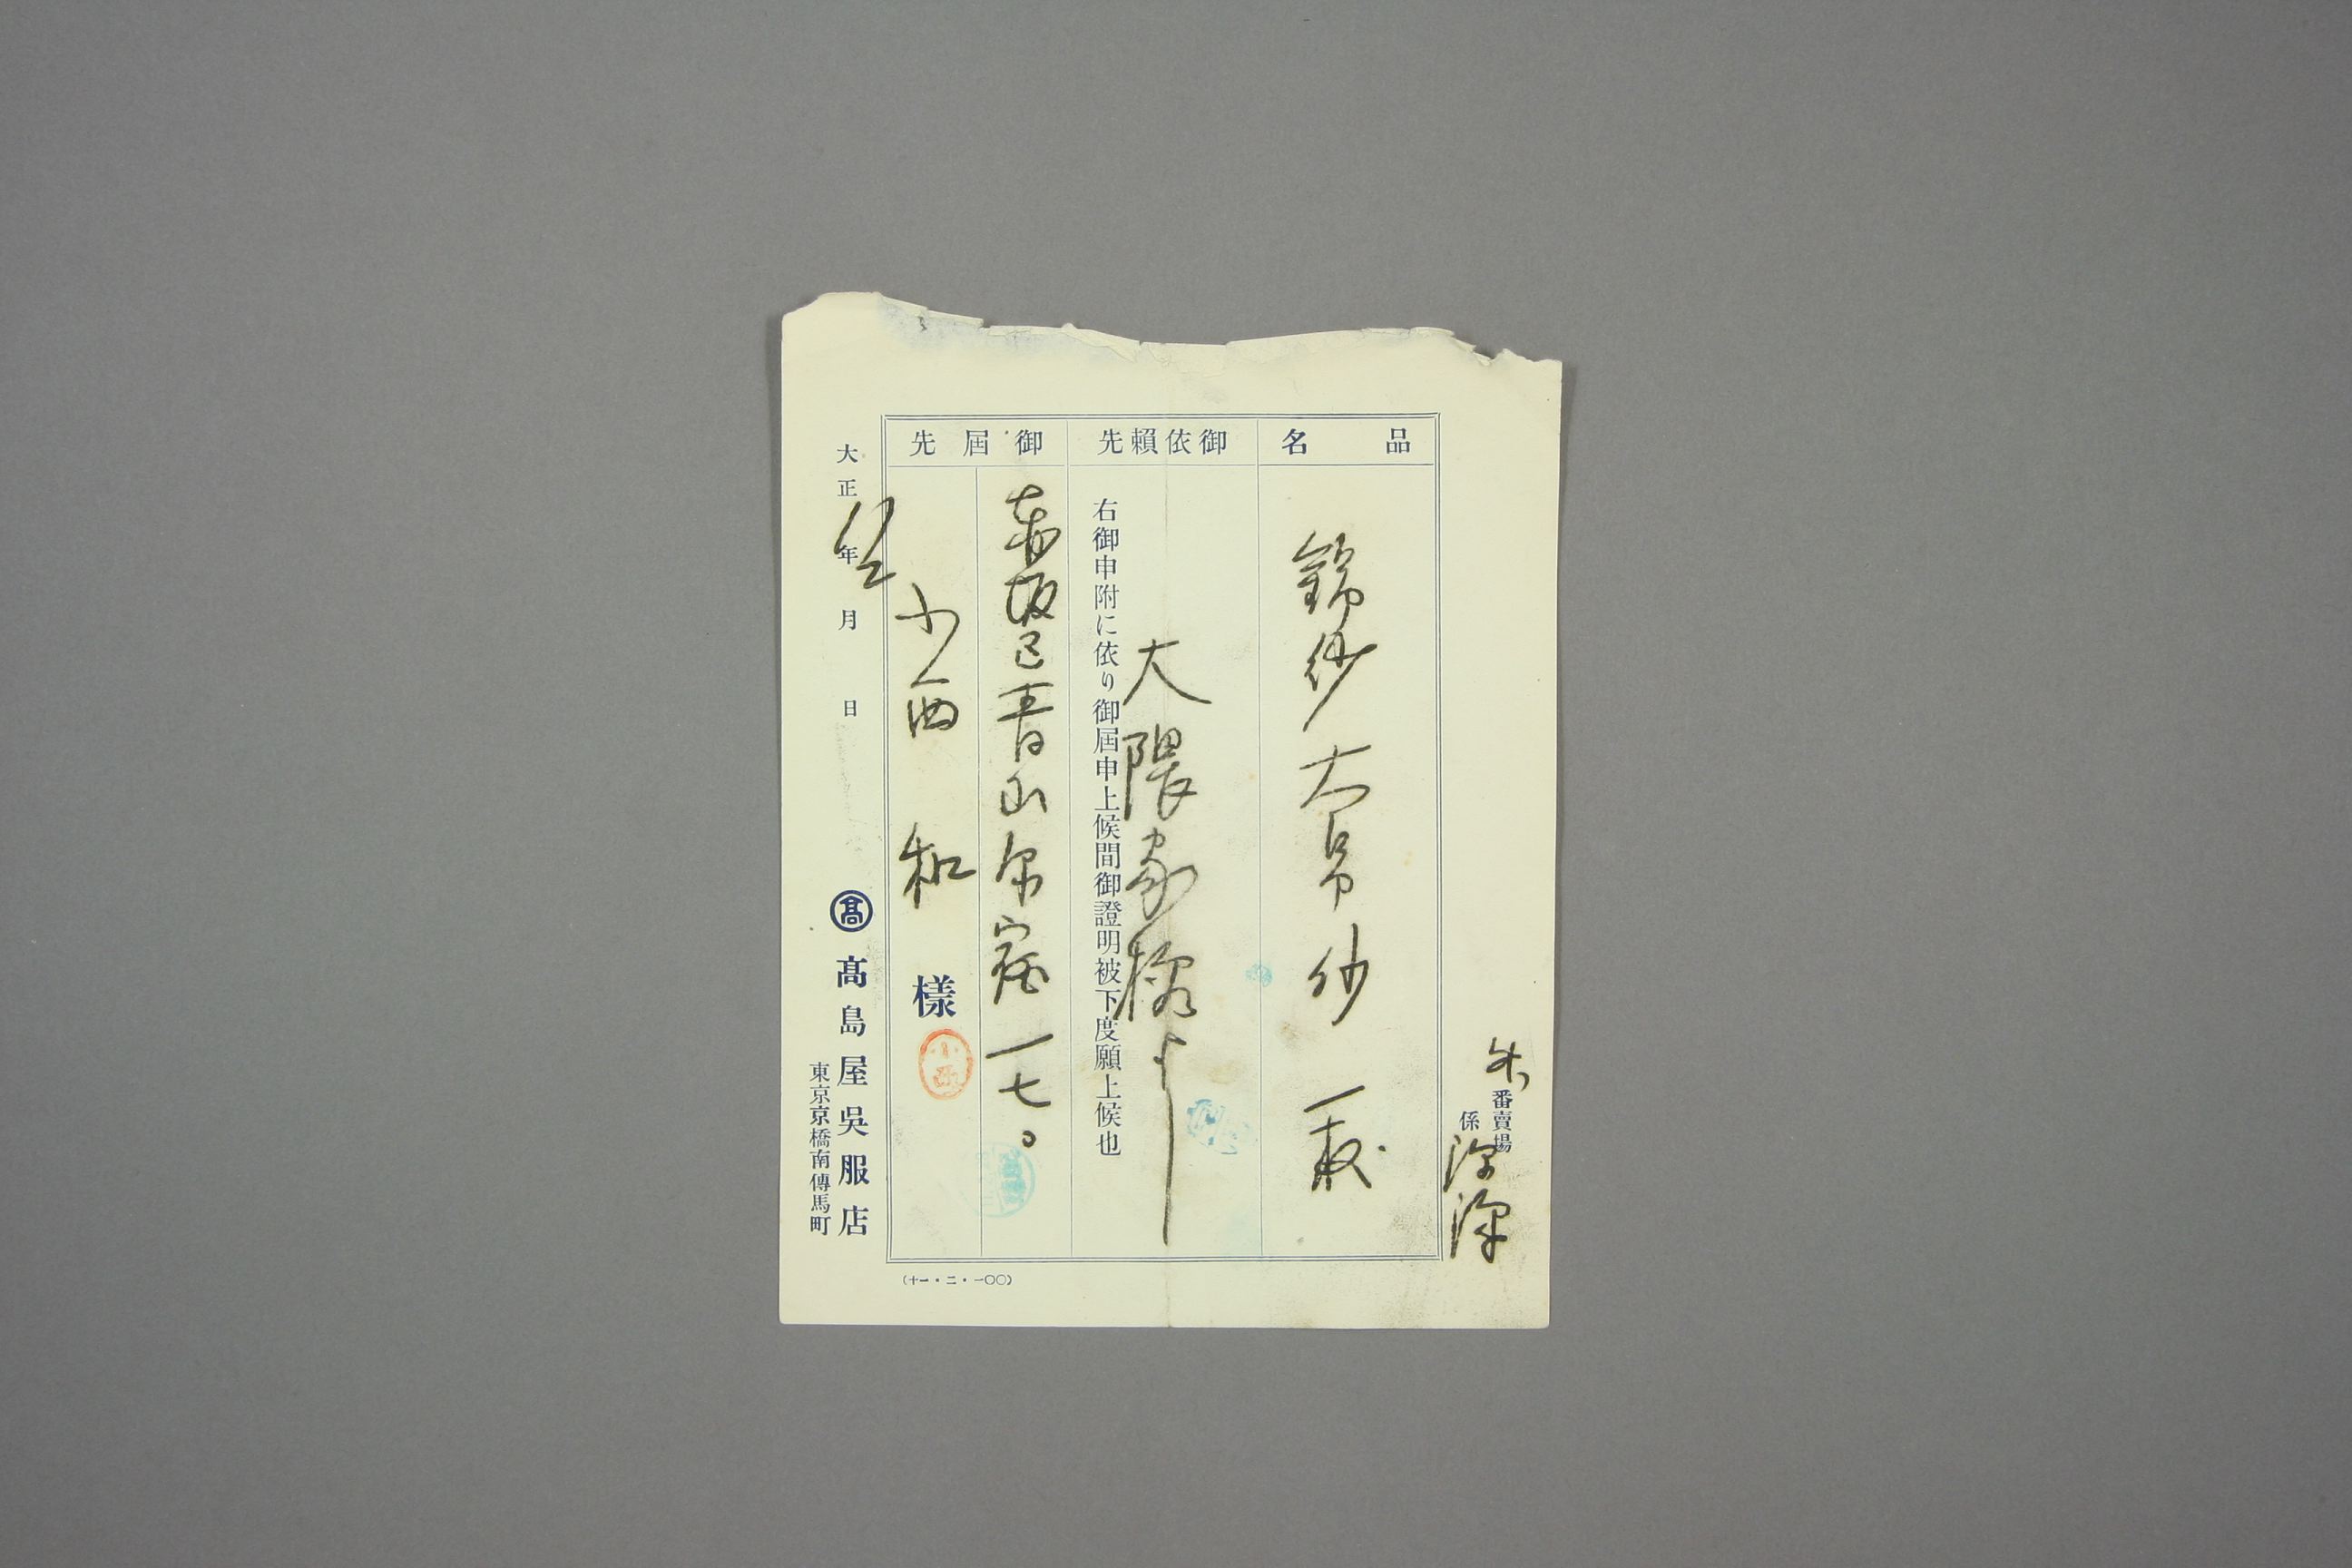 番賣場
係
品名
錦紗大帛紗 一枚
御依賴先
大隈家様より
右御申附に依り御届申上候間御證明被下度願上候也
御届先
赤坂区青山原宿一七〇
小西 和 様
小西
大正 年 月 日
髙 髙島屋吳服店
東京京橋南傳馬町
(十一・二・一〇〇)